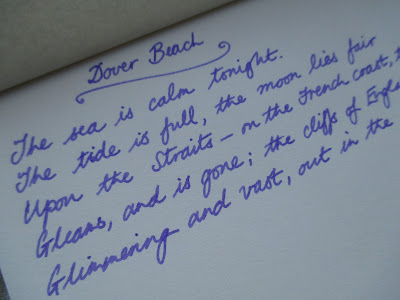 Dover Beach
The sea is calm tonight.
The tide is full, the moon lies fair
Upon the Straits – on the French coast, t
Gleams, and is gone; the cliffs of Engla
Glimmering and vast, out in the